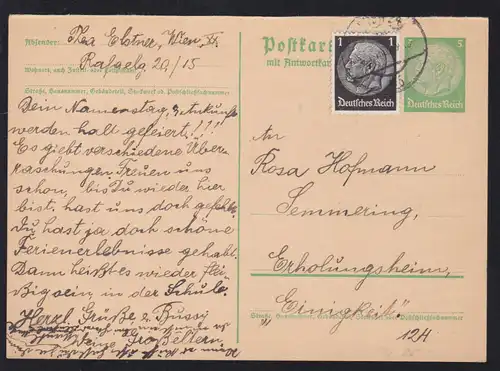 Absender: Rea Elstner, Wien
Rafaelg. 20/15
Wohnort, auch Zustell- oder Leitpostamt
Straße, Hausnummer, Gebäudeteil, Stockwerk od. Postschließfachnummer
Dein Namenstag, Ankunft
werden halt gefeiert!!!
Es giebt verschiedene Über-
raschungen. Freuen uns
schon, bis Du wieder hier
bist, hast uns doch gefehlt.
Du hast ja doch schöne
Ferienerlebnisse gehabt.
Dann heißt es wieder flei-
ßig sein in der Schule.
Herzl. Grüße & Bussi
Deine Großeltern
Postkarte
mit Antwortkarte
1 1
Deutsches Reich
5 5
Deutsches Reich
An
Rosa Hofmann
Semmering,
Erholungsheim,
"Einigkeit"
Straße, Hausnummer, Gebäudeteil, Stockwerk oder Postschließfachnummer
124